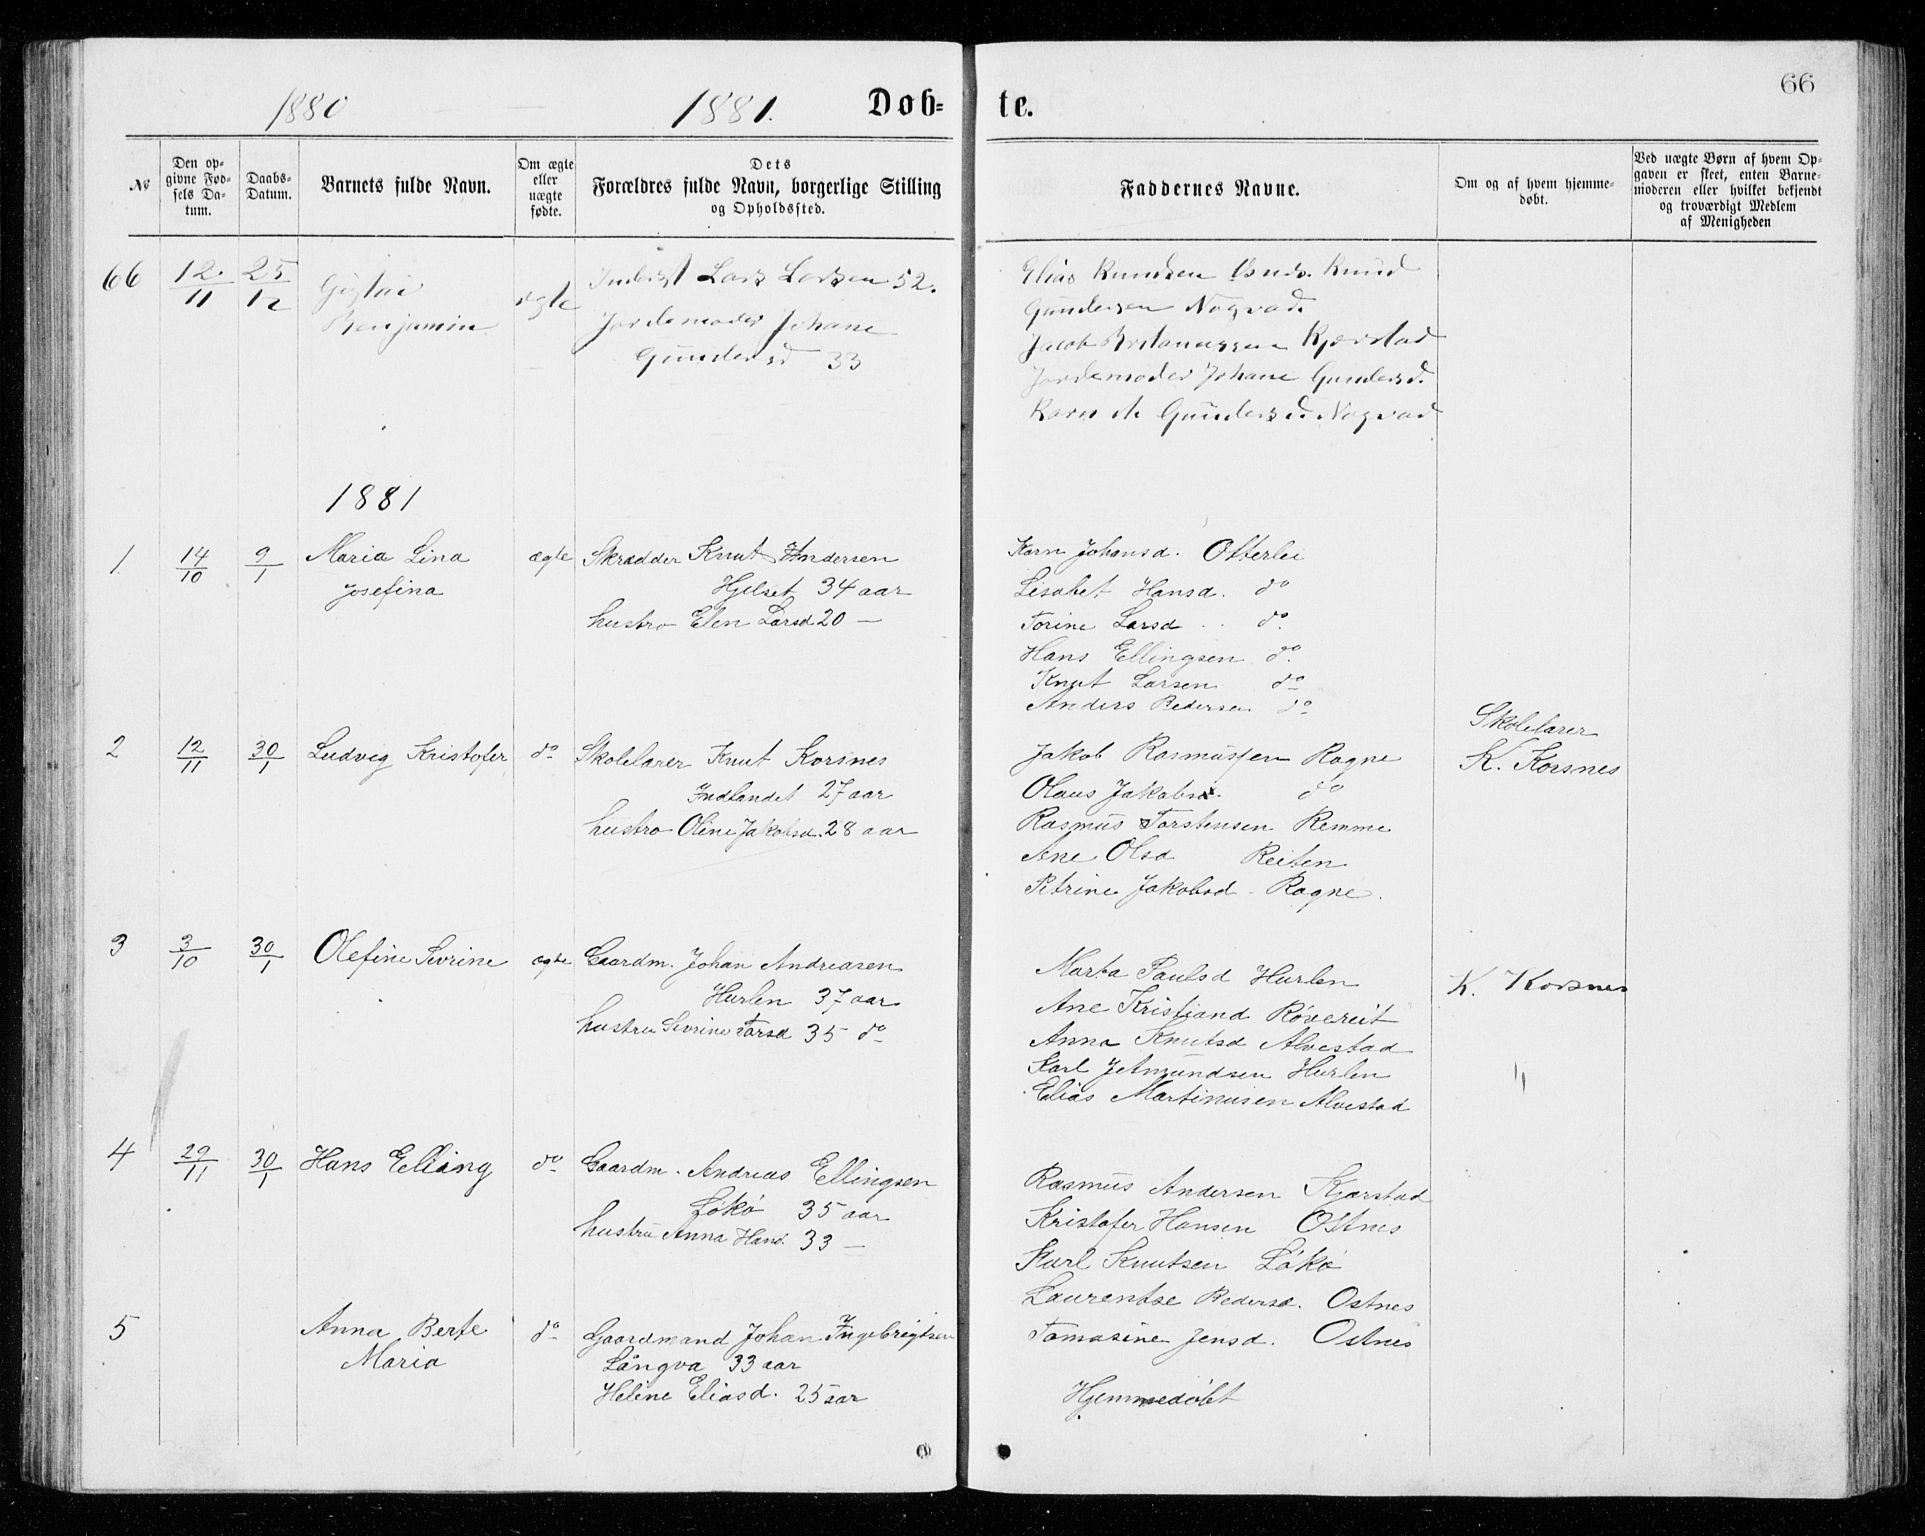 66
1880 1881. Døb- te.
№
Den op-
givne Fød-
sels Da-
tum.
Daabs-
Datum.
Barnets fulde Navn.
Om ægte
eller
uægte
fødte.
Dets
Forældres fulde Navn, borgerlige Stilling
og Opholdssted.
Faddernes Navne.
Om og af hvem hjemme-
døbt.
Ved uægte Børn af hvem Op-
gaven er skeet, enten Barne-
moderen eller hvilket bekjendt
og troværdigt Medlem
af Menigheden
66 12/11 25/12
Benjamin
ægte
Inderst Lars Larsen 52.
Jordemoder Johane
Gundersd 33
Elias Knudsen Knud
Gundersen Nogvad.
Jacob Kjerstad
Jordemoder Johane Gundersd.
Karn M Gundersd Nogvad
1881
1 14/10 9/1 Maria Lina
Josefina
ægte
Skrædder Knut Andersen
Hjelset 34 aar
hustro Elen Larsd 20 —
Karn Johansd. Otterlei
Lisabet Hansd. do
Torine Larsd do.
Hans Ellingsen do.
Knut Larsen do
Anders Pedersen do
2 12/11 30/1 Ludvig Kristofer do
Skolelærer Knut Korsnes
Indlandet 27 aar
hustro Oline Jakobsd. 28 aar
Jakob Rasmussen Ragne
Olaus Jakobsd. do
Rasmus Torstensen Remme
Ane Olsd Reiten
Petrine Jakobsd - Ragne.
Skolelærer
K. Korsnes
3 3/10 30/1 Olefine Sivrine ægte
Gaardm. Johan Andreasen
Hurlen 37 aar
hustru Sivrine Larsd 35 do
Marta Paulsd Hurlen
Ane Kristiand Rövereit
Anna Knutsd Alvestad
Karl J Amundsen Hurlen
Elias Martinusen Alvestad
K. Korsnes
"
4 29/11 30/1 Hans Elling do
Gaardm. Andreas Ellingsen
Løkø 35 aar
hustru Anna Hansd. 33 —
Rasmus Andersen Kjærstad
Kristofer Hansen Ostnes
Karl Knutsen Løkø
Laurentse Pedersd. Ostnes
Tomasine Jensd. Ostnes
5 Anna Berte
Maria
do
Gaardmand Johan Ingebrigtsen
Långva 33 aar
Heline Eliasd. 25 aar
Hjemmedøbt